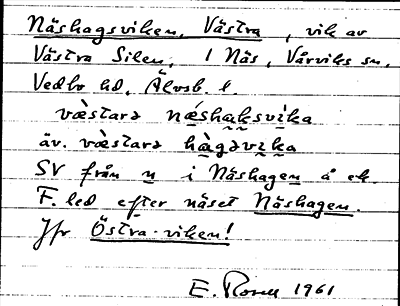 Näshagsviken, Västra, vik av
Västra Silen, i Näs, Vårviks sn,
Vedbo hd, Älvsb. l.
væ̀starə nǽshaksvika
äv. væ̀starə hàgəvika
SV från n i Näshagen å ek.
F. led efter näset Näshagen.
Jfr Östra-viken!
E. Rosell 1961